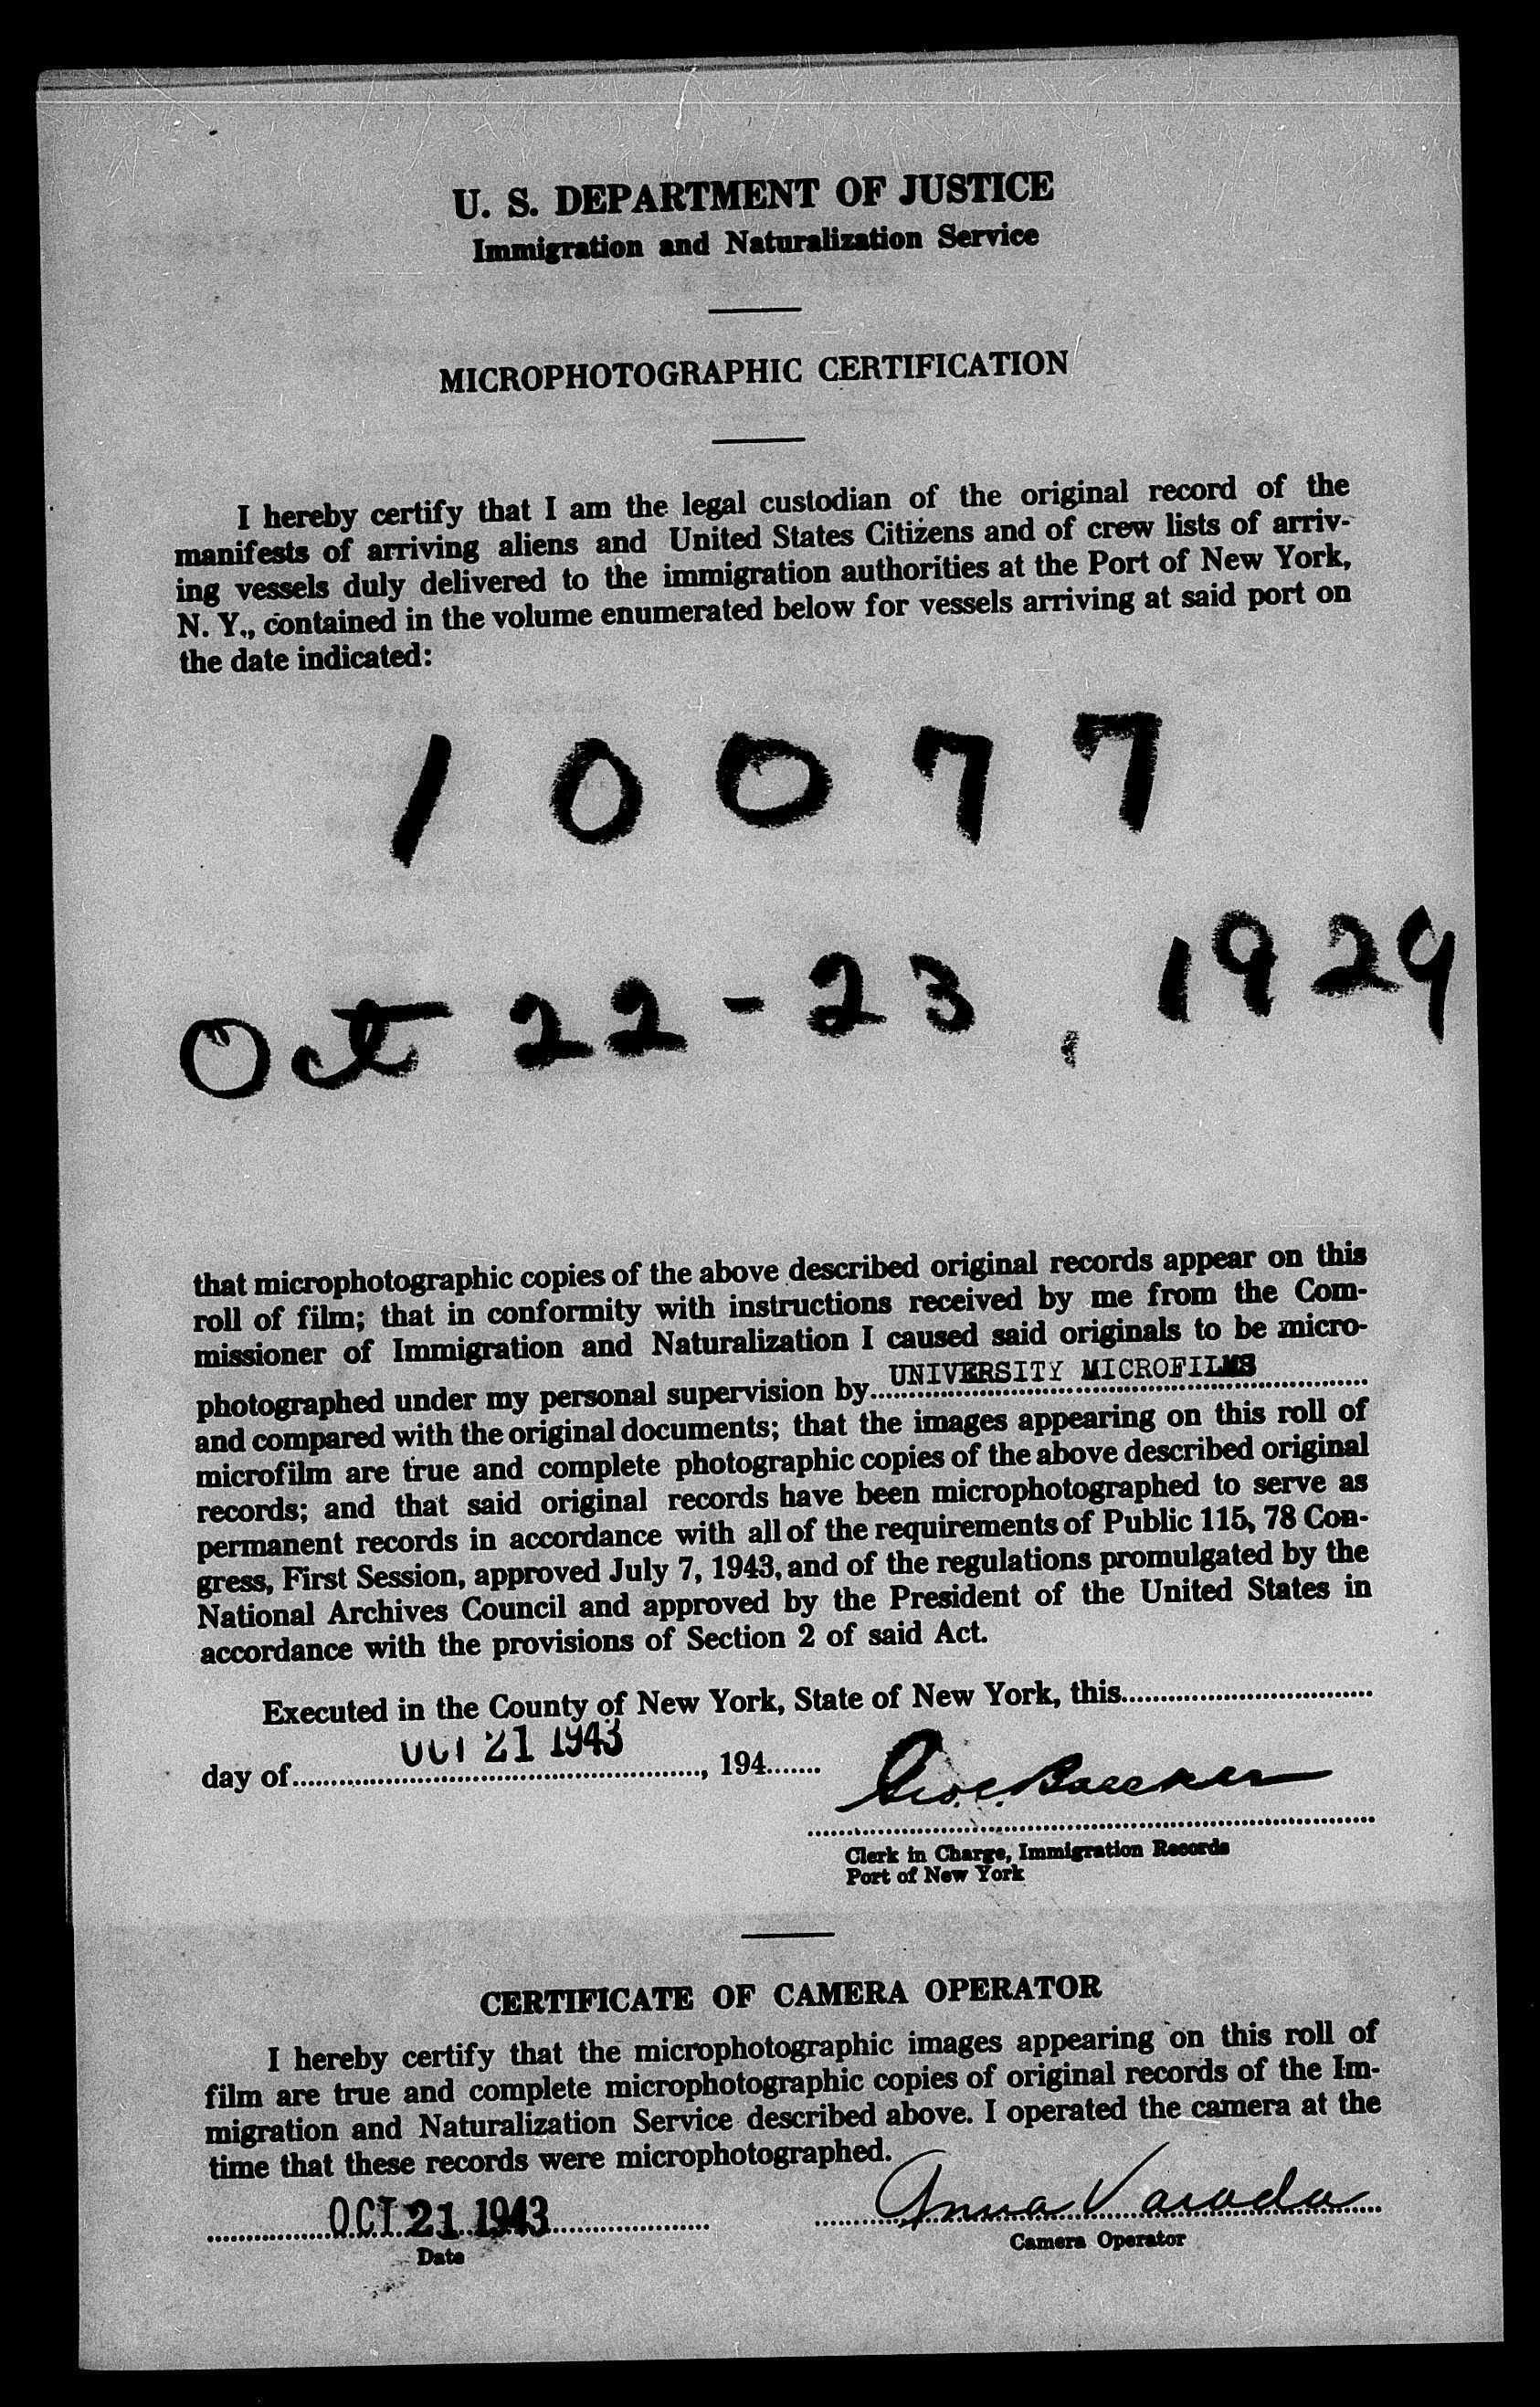 U. S. DEPARTMENT OF JUSTICE
Immigration and Naturalization Service
MICROPHOTOGRAPHIC CERTIFICATION
I hereby certify that I am the legal custodian of the original record of the
manifests of arriving aliens and United States Citizens and of crew lists of arriv-
ing vessels duly delivered to the immigration authorities at the Port of New York,
N. Y., contained in the volume enumerated below for vessels arriving at said port on
the date indicated:
10077
Oct 22-23, 1929
that microphotographic copies of the above described original records appear on this
roll of film; that in conformity with instructions received by me from the Com-
missioner of Immigration and Naturalization I caused said originals to be micro-
photographed under my personal supervision by UNIVERSITY MICROFILMS
and compared with the original documents; that the images appearing on this roll of
microfilm are true and complete photographic copies of the above described original
records; and that said original records have been microphotographed to serve as
permanent records in accordance with all of the requirements of Public 115, 78 Con-
gress, First Session, approved July 7, 1943, and of the regulations promulgated by the
National Archives Council and approved by the President of the United States in
accordance with the provisions of Section 2 of said Act.
Executed in the County of New York, State of New York, this
day of OCT 21 1943, 194
Clerk in Charge, Immigration Records
Port of New York
CERTIFICATE OF CAMERA OPERATOR
I hereby certify that the microphotographic images appearing on this roll of
film are true and complete microphotographic copies of original records of the Im-
migration and Naturalization Service described above. I operated the camera at the
time that these records were microphotographed.
OCT 21 1943 Anna
Date
Camera Operator